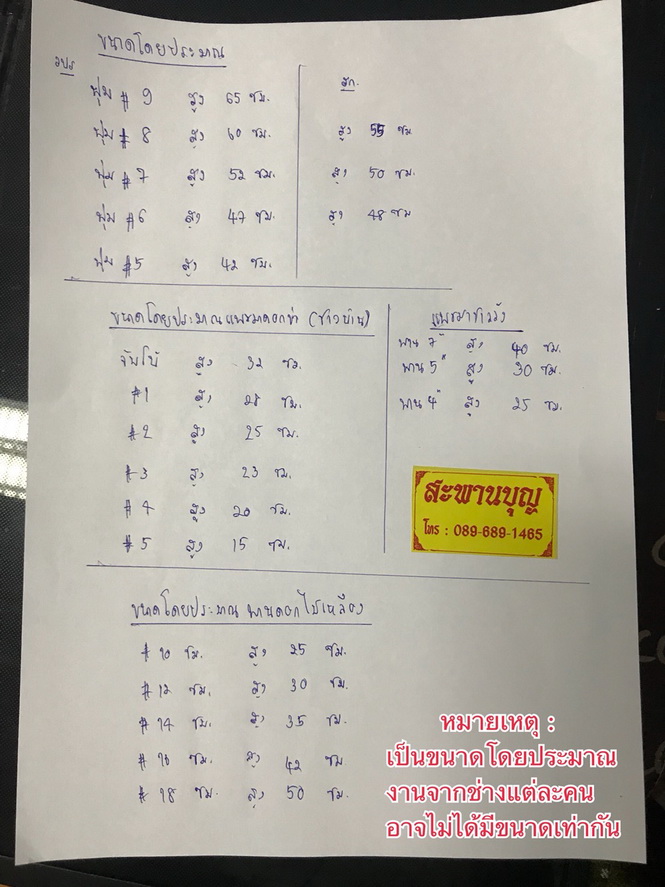 ขนาดโดยประมาณ
วปร
พุ่ม #9 สูง 65 ซม.
พุ่ม #8 สูง 60 ซม.
พุ่ม #7 สูง 52 ซม.
พุ่ม #6 สูง 47 ซม.
พุ่ม #5 สูง 42 ซม.
สก.
สูง 55 ซม
สูง 50 ซม.
สูง 48 ซม
ขนาดโดยประมาณ (ชาวบ้าน)
จัมโบ้ สูง 32 ซม.
#1 สูง 28 ซม.
#2 สูง 25 ซม.
#3 สูง 23 ซม.
#4 สูง 20 ซม.
#5 สูง 15 ซม.
ชาววัง
พาน 7" สูง 40 ซม.
พาน 5" สูง 30 ซม.
พาน 4" สูง 25 ซม.
สะพานบุญ
โทร : 089-689-1465
ขนาดโดยประมาณ พานดอกไม้เหลือง
#10 ซม. สูง 25 ซม.
#12 ซม. สูง 30 ซม.
#14 ซม. สูง 35 ซม.
#16 ซม. สูง 42 ซม
#18 ซม. สูง 50 ซม.
หมายเหตุ :
เป็นขนาดโดยประมาณ
งานจากช่างแต่ละคน
อาจไม่ได้มีขนาดเท่ากัน